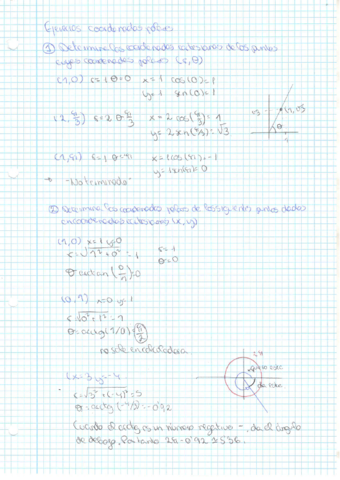 Ejercicios coordenadas polares
① Determinar las coordenadas cartesianas de los puntos
cuyas coordenadas polares (r, θ)
(1,0) r=1 θ=0 x= 1 cos(0)=1
y= 1 sen(0)=
(2, π/3) r=2 θ π/3 x= 2 cos(π/3)= 1
y= 2 sen(π/3)= √3
(1, π) r=1 θ=π x= cos(π)=-1
y= 1 sen(π)= 0
→ -No terminado-
② Determinar las coordenadas polares de los siguientes puntos dados
en coordenadas cartesianas (x, y)
(1,0) x=1 y=0
r=√1²+0² = 1 r=1
θ=arctan(0/1)=0 θ=0
(0,1) x=0 y=1
r=√0²+1² = 1
θ= arctg(1/0)= π/2
no sale en calculadora
x=3 y=-4
r=√3²+(-4)²=5
θ= arctg(-4/3)=-0'92
Cuando el arctg es un número negativo -, da el ángulo
de debajo. Por tanto 2π-0'92 ≈ 5'36.